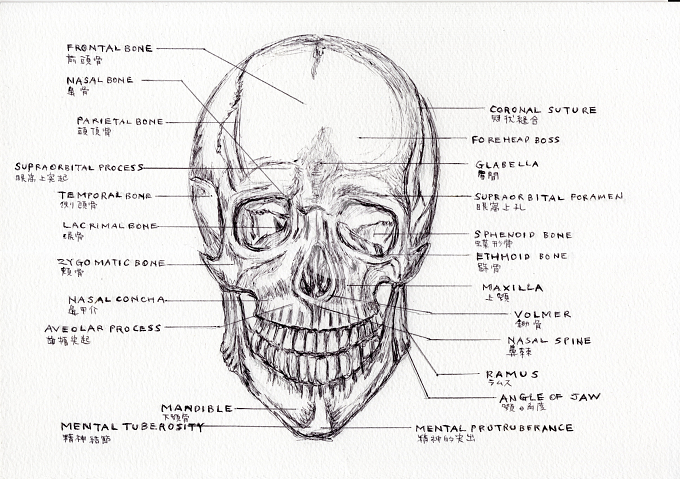 FRONTAL BONE
前頭骨
NASAL BONE
鼻骨
PARIETAL BONE
頭頂骨
SUPRAORBITAL PROCESS
眼窩上突起
TEMPORAL BONE
側頭骨
LACRIMAL BONE
涙骨
ZYGOMATIC BONE
頬骨
NASAL CONCHA
鼻甲介
AVEOLAR PROCESS
歯槽突起
MANDIBLE
下顎骨
MENTAL TUBEROSITY
精神結節
CORONAL SUTURE
冠状縫合
FOREHEAD BOSS
GLABELLA
眉間
SUPRAORBITAL FORAMEN
眼窩上孔
SPHENOID BONE
蝶形骨
ETHMOID BONE
篩骨
MAXILLA
上顎
VOLMER
鋤骨
NASAL SPINE
鼻棘
RAMUS
ラムス
ANGLE OF JAW
顎の角度
MENTAL PROTRUBERANCE
精神的突出